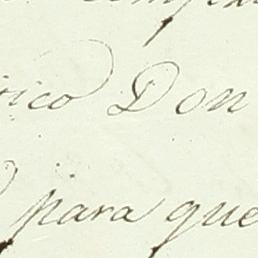 rico Don
para que